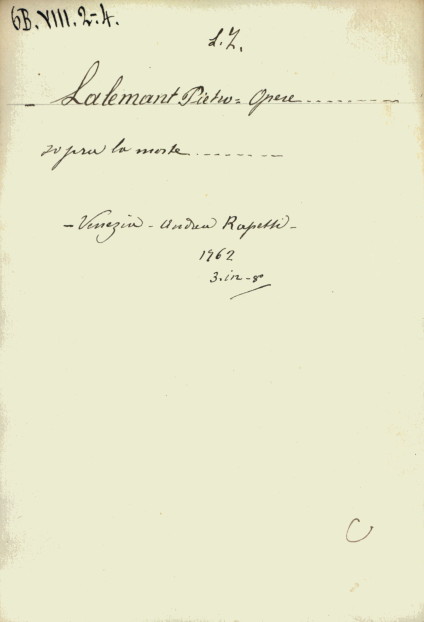 6B. VIII. 2-4.
L.Z.
- Lalemant Pietro = Opere ..............
sopra la morte ..............
- Venezia - Andrea Rapetti -
1762
3. in - 8°
C